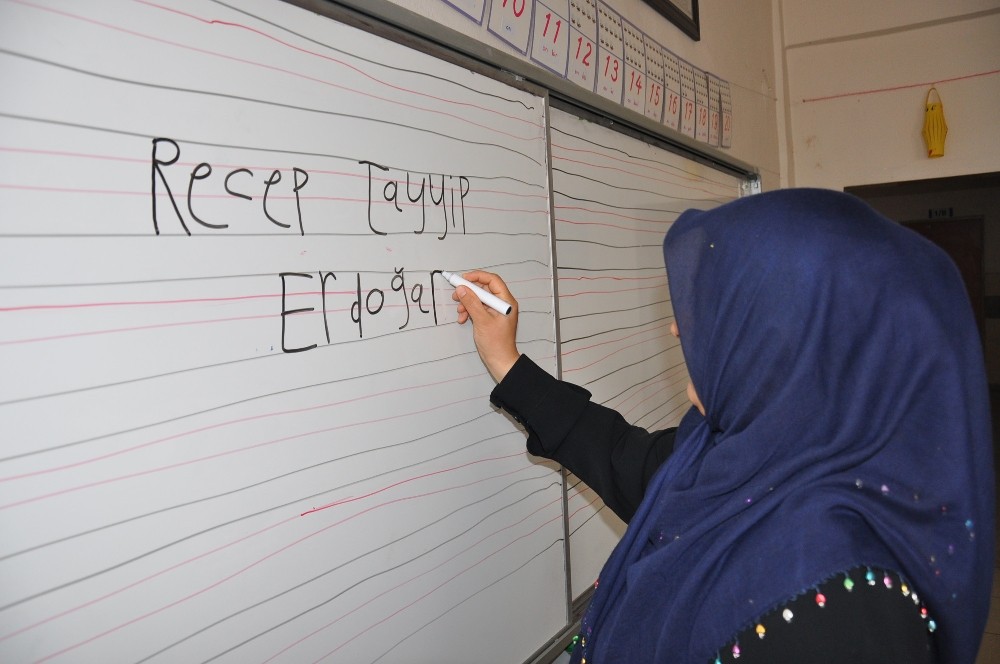 10 11 12 13 14 15 16 17 18 19
Recep Tayyip
Erdoğar